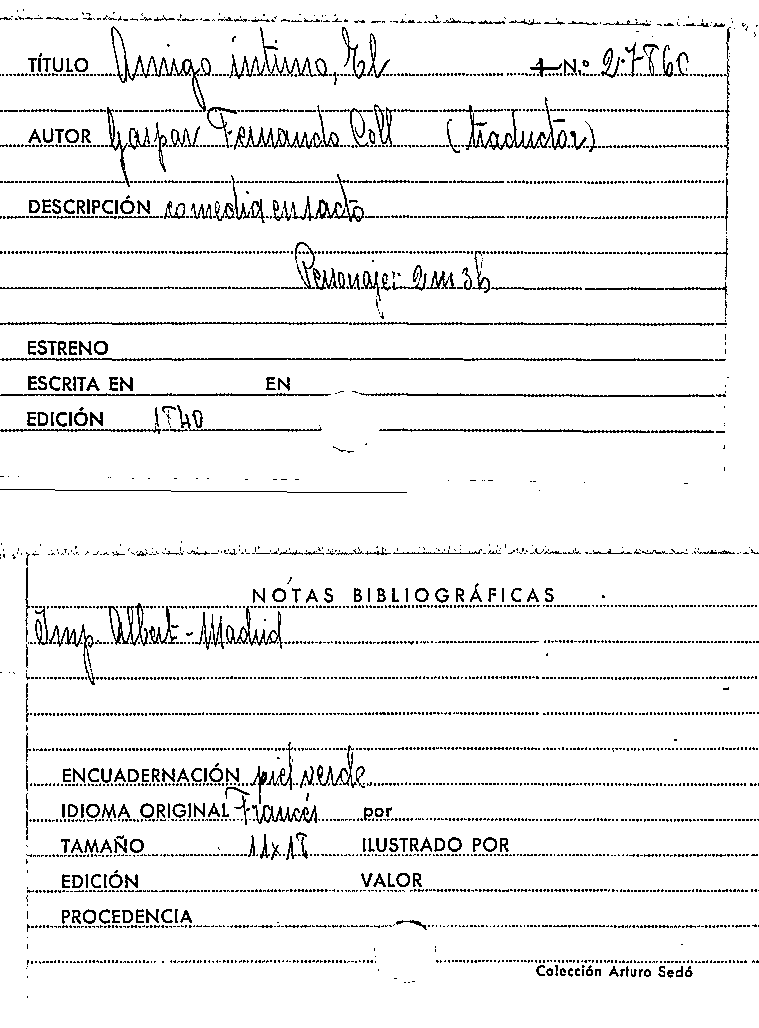 TÍTULO Amigo íntimo, El N.º 27860
AUTOR Gaspar Fernando Coll (traductor)
DESCRIPCIÓN comedia en 1 acto
Personajes 2m 3h
ESTRENO
ESCRITA EN EN
EDICIÓN 1840
NOTAS BIBLIOGRÁFICAS
Imp Albert - Madrid
ENCUADERNACIÓN piel verde
IDIOMA ORIGINAL Francés por
TAMAÑO 11x18 ILUSTRADO POR
EDICIÓN VALOR
PROCEDENCIA
Colección Arturo Sedó